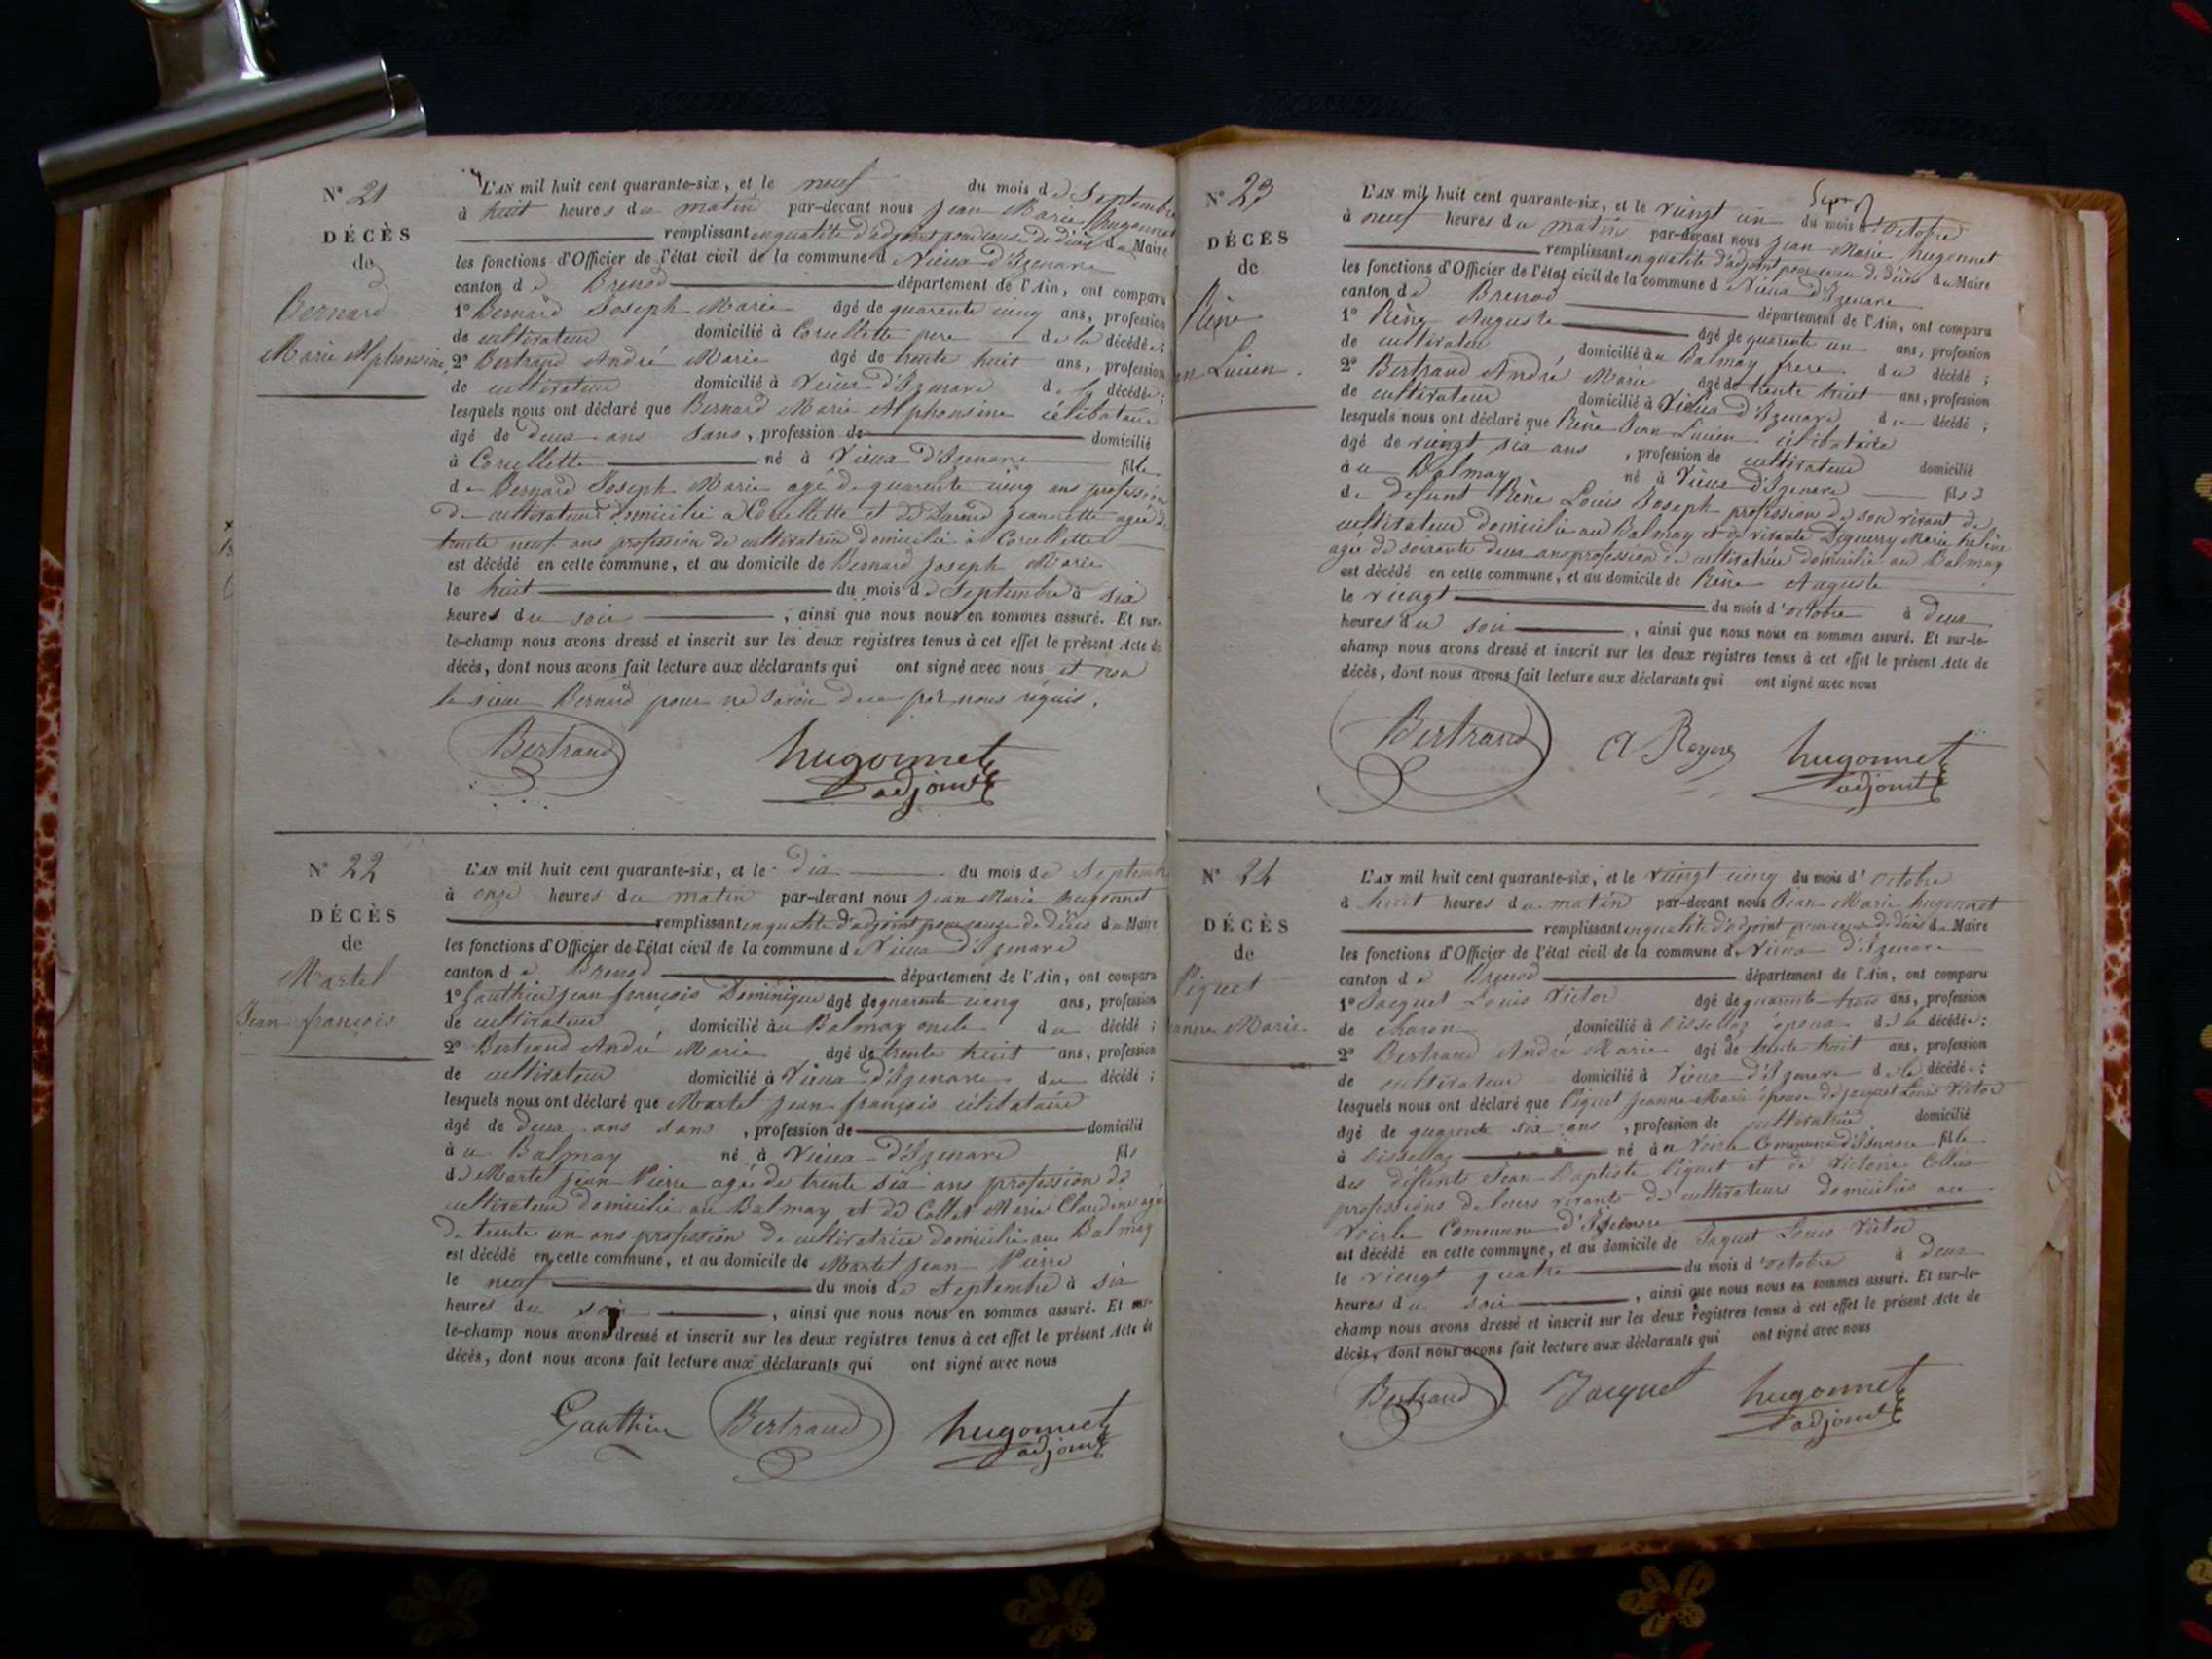 N° 21
DÉCÈS
de
Bernard
Marie Alphonsine
L'AN mil huit cent quarante-six, et le neuf du mois de Septembre
à huit heures du matin par-devant nous Jean Marie hugonnet
remplissant en qualité d'adjoint pour cause de décès du Maire
les fonctions d'Officier de l'état civil de la commune d Vieux d'Izenave
canton de Brenod département de l'Ain, ont comparu
1° Bernard Joseph Marie âgé de quarente cinq ans, profession
de cultivateur domicilié à Corcellette pere de la décédée;
2° Bertrand André Marie âgé de trente huit ans, profession
de cultivateur domicilié à Vieux d'Izenave de la décédée;
lesquels nous ont déclaré que Bernard Marie Alphonsine célibataire
âgé de deux ans Sans, profession de domicilié
à Corcellette né à Vieux d'Izenave fille
de Bernard Joseph Marie agé de quarente cinq ans profession
de cultivateur domicilié à Corcellette et de Jeannette agée de
trente neuf ans profession de cultivatrice domicilié à Corcellette
est décédé en cette commune, et au domicile de Bernard Joseph Marie
le huit du mois de Septembre à six
heures du soir, ainsi que nous nous en sommes assuré. Et sur-
le-champ nous avons dressé et inscrit sur les deux registres tenus à cet effet le présent Acte de
décès, dont nous avons fait lecture aux déclarants qui ont signé avec nous et non
le sieur Bernard pour ne savoir de ce par nous réquis.
Bertrand hugonnet
adjoint
N° 22
DÉCÈS
de
Martel
Jean françois
L'AN mil huit cent quarante-six, et le dix du mois de Septemb
à onze heures du matin par-devant nous Jean Marie hugonnet
remplissant en qualité d'adjoint pour cause de décès du Maire
les fonctions d'Officier de l'état civil de la commune d Vieux d'Izenave
canton de Brenod département de l'Ain, ont comparu
1° Gauthier Jean françois Dominique âgé de quarente cinq ans, profession
de cultivateur, domicilié au Balmay oncle du décédé;
2° Bertrand André Marie âgé de trente huit ans, profession
de cultivateur domicilié à Vieux d'Izenave du décédé;
lesquels nous ont déclaré que Martel Jean françois célibataire
âgé de deux ans sans, profession de domicilié
au Balmay né à Vieux d'Izenave fils
de Martel Jean Pierre agé de trente six ans profession de
cultivateur domicilié au Balmay et de Collet Marie Claudine agé
de trente un ans profession de cultivatrice domicilié au Balmay
est décédé en cette commune, et au domicile de Martel Jean Pierre
le neuf du mois de Septembre à six
heures du soir, ainsi que nous nous en sommes assuré. Et sur-
le-champ nous avons dressé et inscrit sur les deux registres tenus à cet effet le présent Acte de
décès, dont nous avons fait lecture aux déclarants qui ont signé avec nous
Gauthier Bertrand hugonnet
adjoint
N° 23
DÉCÈS
de
Rène
Lucien
L'AN mil huit cent quarante-six, et le vingt un du mois d'octobre
à neuf heures du matin par-devant nous Jean Marie hugonnet
remplissant en qualité d'adjoint pour cause de décès du Maire
les fonctions d'Officier de l'état civil de la commune d Vieux d'Izenave
canton de Brenod département de l'Ain, ont comparu
1° Rène Auguste âgé de quarente un ans, profession
de cultivateur domicilié au Balmay frere du décédé;
2° Bertrand André Marie âgé de trente huit ans, profession
de cultivateur domicilié à Vieux d'Izenave du décédé;
lesquels nous ont déclaré que Rène Jean Lucien célibataire
âgé de vingt six ans, profession de cultivateur domicilié
au Balmay né à Vieux d'Izenave fils d
de defunt Rène Louis Joseph profession de son vivant de
cultivateur domicilié au Balmay et de vivante Marie helène
agée de soixante deux ans profession de cultivatrice domicilié au Balmay
est décédé en cette commune, et au domicile de Rène Auguste
le vingt du mois d'octobre à deux
heures du soir, ainsi que nous nous en sommes assuré. Et sur-le-
champ nous avons dressé et inscrit sur les deux registres tenus à cet effet le présent Acte de
décès, dont nous avons fait lecture aux déclarants qui ont signé avec nous
Bertrand hugonnet
adjoint
N° 24
DÉCÈS
de
Piquet
Jeanne Marie
L'AN mil huit cent quarante-six, et le vingt cinq du mois d'octobre
à huit heures du matin par-devant nous Jean Marie hugonnet
remplissant en qualité d'adjoint pour cause de décès du Maire
les fonctions d'Officier de l'état civil de la commune d Vieux d'Izenave
canton de Brenod département de l'Ain, ont comparu
1° Jacquet Louis Victor âgé de quarente trois ans, profession
de charon domicilié à époux de la décédée;
2° Bertrand André Marie âgé de trente huit ans, profession
de cultivateur domicilié à Vieux d'Izenave de la décédée;
lesquels nous ont déclaré que Piquet Jeanne Marie épouse de Jacquet Louis Victor
âgé de quarente six ans, profession de cultivatrice domicilié
à né au Voirle Commune d'Isenore fille
des défunts Jean Baptiste Piquet et de Victoire
professions de leurs vivants de cultivateurs domiciliés au
Voirle Commune d'Isenore
est décédé en cette commune, et au domicile de Jaquet Louis Victor
le vingt quatre du mois d'octobre à deux
heures du soir, ainsi que nous nous en sommes assuré. Et sur-le-
champ nous avons dressé et inscrit sur les deux registres tenus à cet effet le présent Acte de
décès, dont nous avons fait lecture aux déclarants qui ont signé avec nous
Bertrand Jacquet hugonnet
adjoint